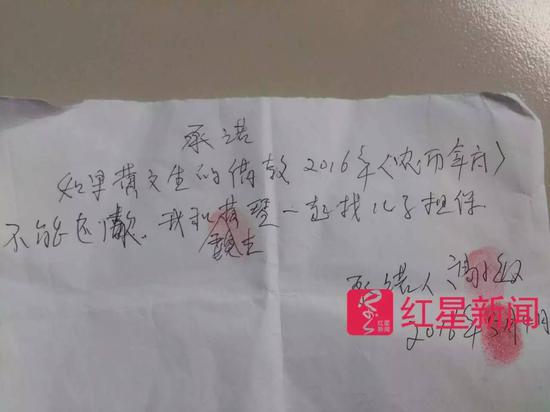 承诺
如果黄文生的借款2016年<农历年前>
不能还清款。我和黄琴一起找儿子担保
承诺人
红星新闻
红星新闻
2016年5月 日